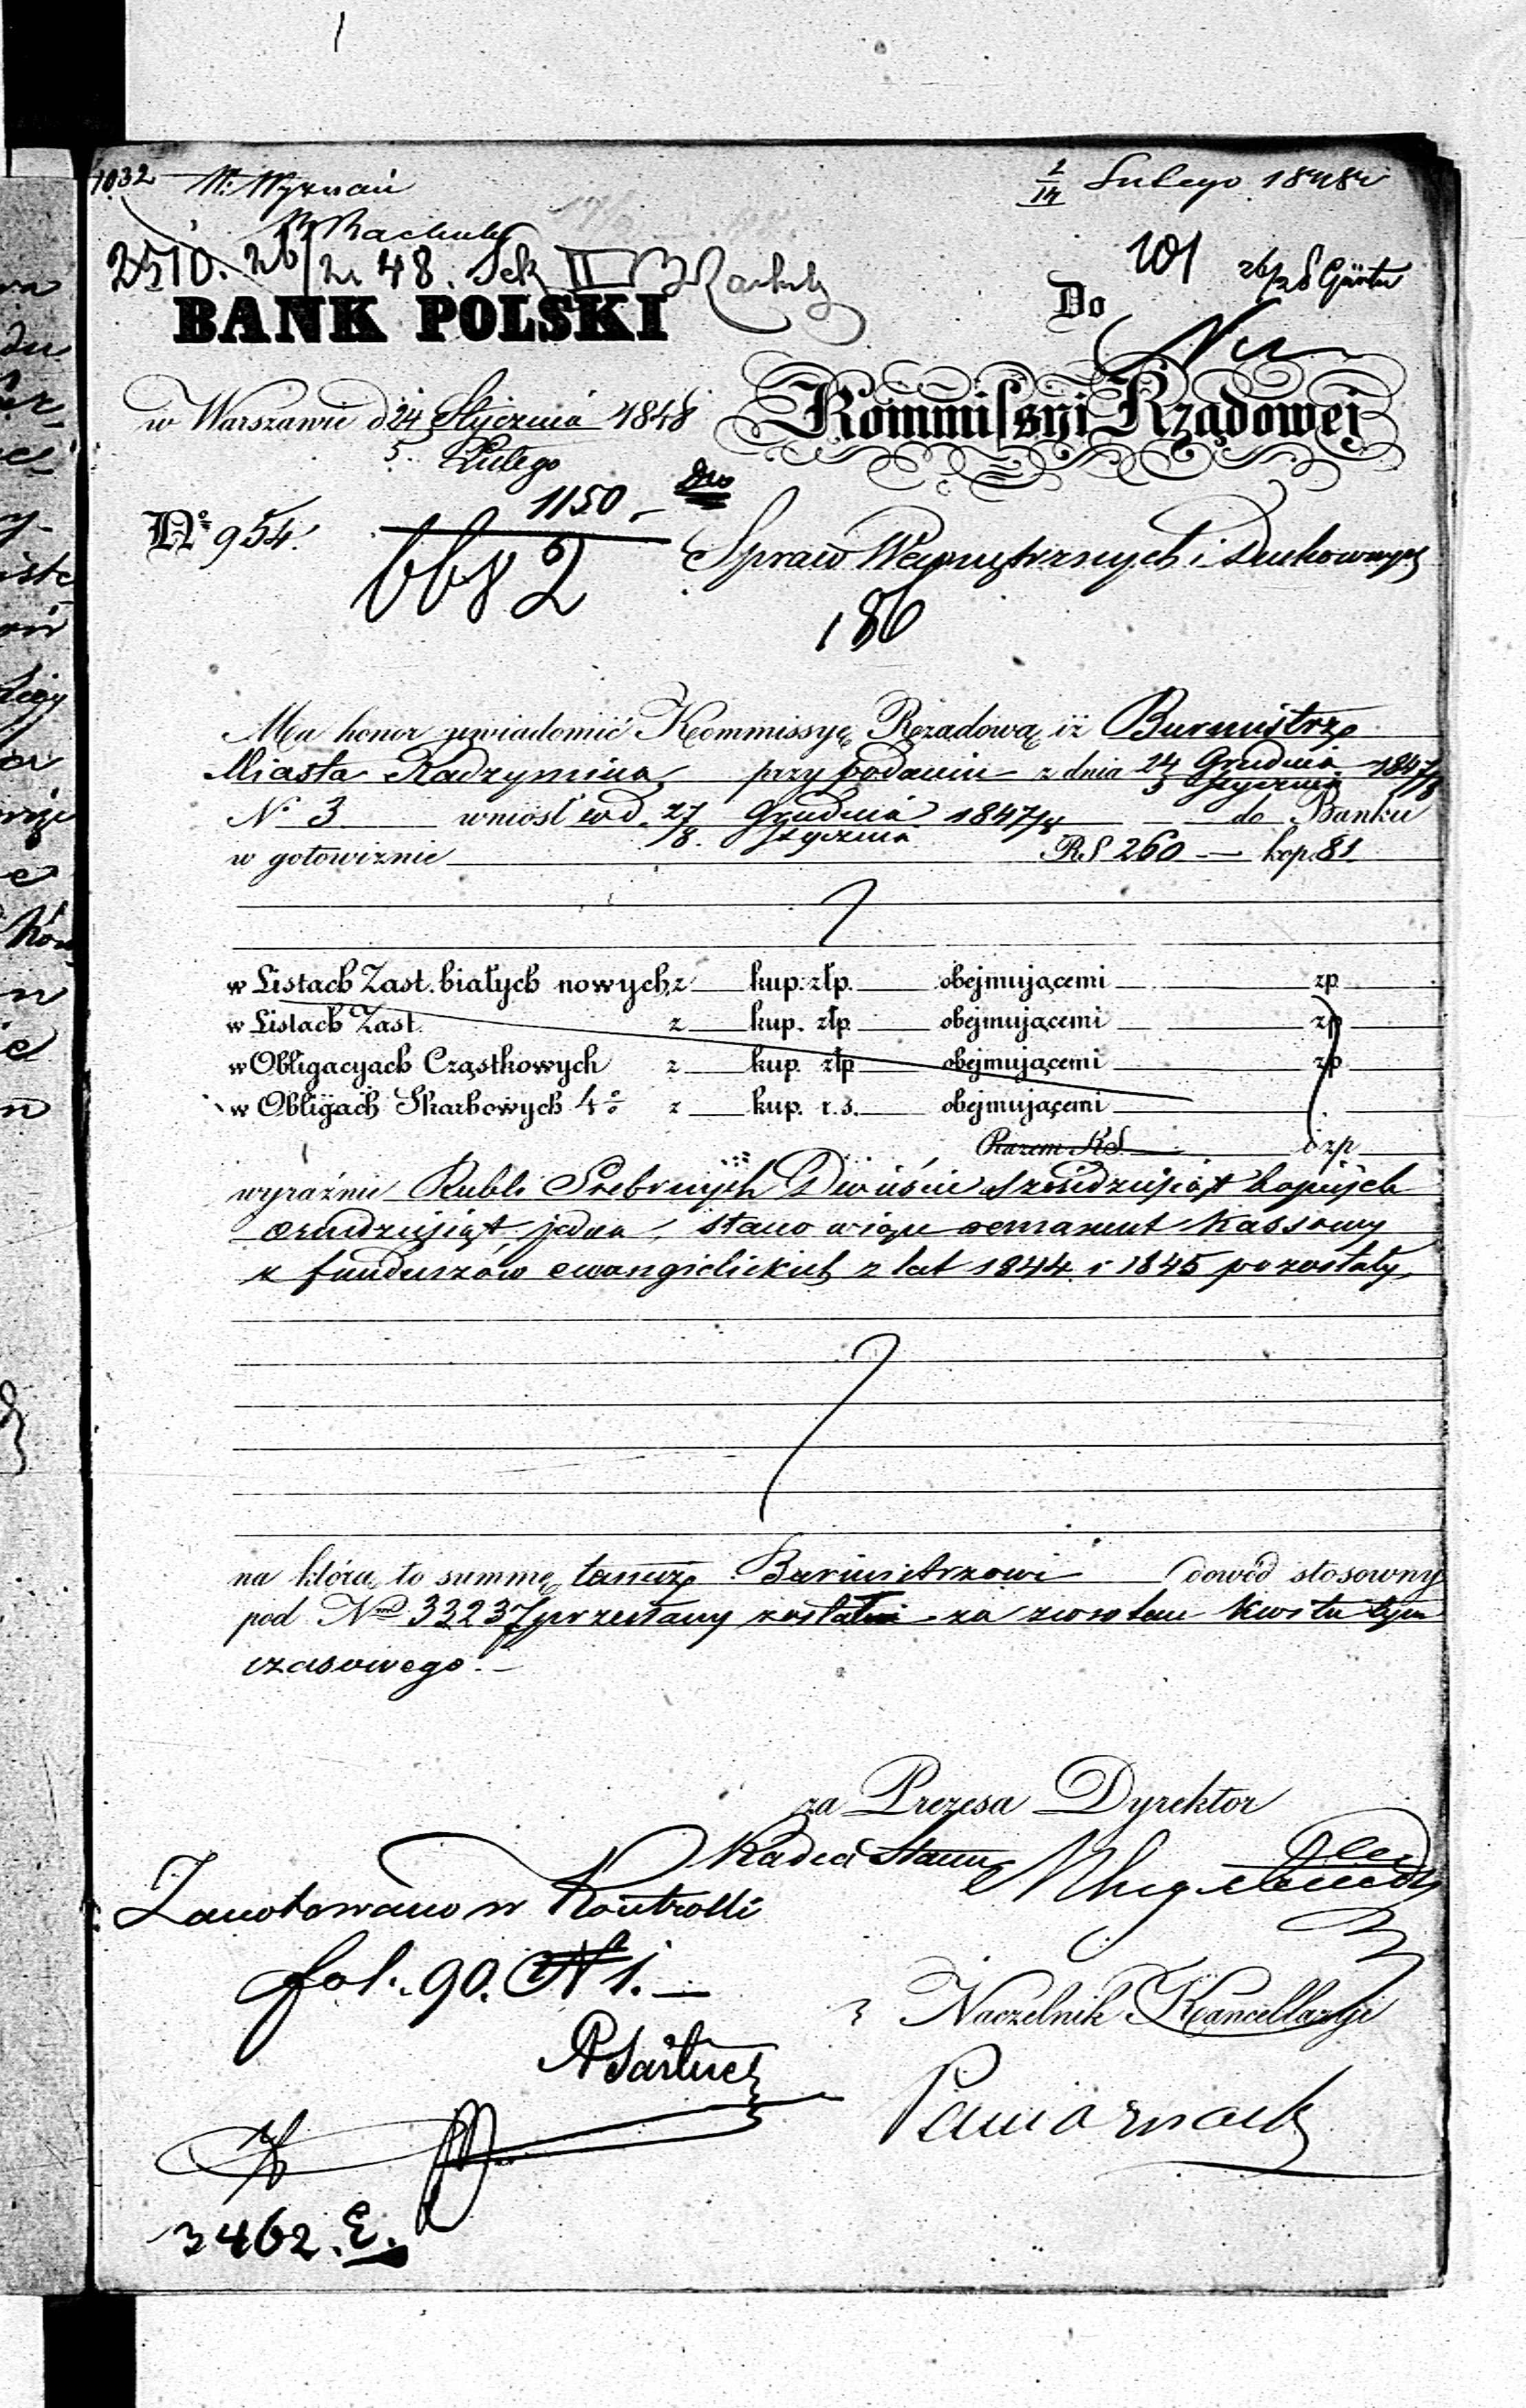 1032 W. Wyznań
2/14 Lutego 1848 r
2510. 26/2 48. Sek II
101
BANK POLSKI
Do
w Warszawie d 24 Stycznia 1848
5 Lutego
Kommissyi Rządowej
1150
N° 954.
6682
Spraw Wewnętrznych i Duchownych
186
Ma honor zawiadomić Kommissyę Rządową iż Burmistrz
Miasta Radzymina przy podaniu z dnia 24 Grudnia 1847/8
5 Stycznia
N° 3 wniósł w d. 27 Grudnia 1847/8 do Banku
/8. Stycznia
w gotowiznie RS 260 — kop. 81
w Listach Zast. białych nowych z kup. złp. obejmującemi zp
w Listach Zast. z kup. złp. obejmującemi zp
w Obligacyach Cząstkowych z kup. złp obejmującemi zp
w Obligach Skarbowych 4% z kup. r. s. obejmującemi
Razem RS. i zp
wyraźnie Rubli Srebrnych Dwieście sześćdziesiąt kopiejek
ośmdziesiąt jedna, stanowiące remanent kassowy
z funduszów ewangielickich z lat 1844 i 1845 pozostały,
na którą to summę tamże Burmistrzowi dowód stosowny
pod Nem 33237 przesłany został za zwrotem kwitu tym
czasowego. —
za Prezesa Dyrektor
Radca Stanu
Zanotowano w Kontrolli
fol. 90. N 1. —
Naczelnik Kancellaryi
3462. E.